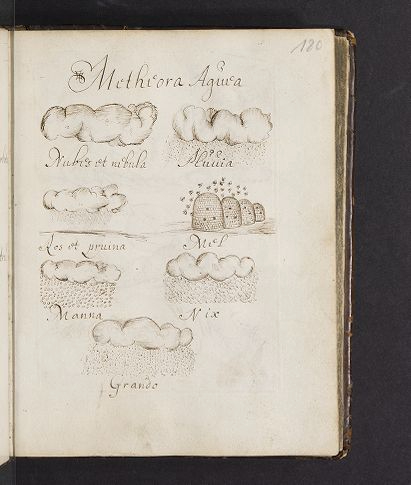 180
Metheora Aquea
Nubes et nebula
Pluuia
Ros et pruina
Mel
Manna
Nix
Grando